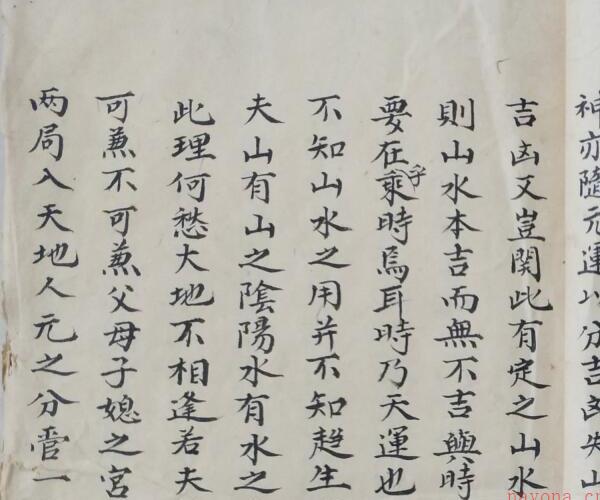 神亦隨元運以分吉凶失山
吉凶又豈関此有定之山水
則山水本吉而無不吉與時
要在乘字時焉耳時乃天運也
不知山水之用并不知趋生
夫山有山之陰陽水有水之
此理何愁大地不相逢若夫
可兼不可兼父母子媳之宮
两局入天地人元之分管一
nayona.cn